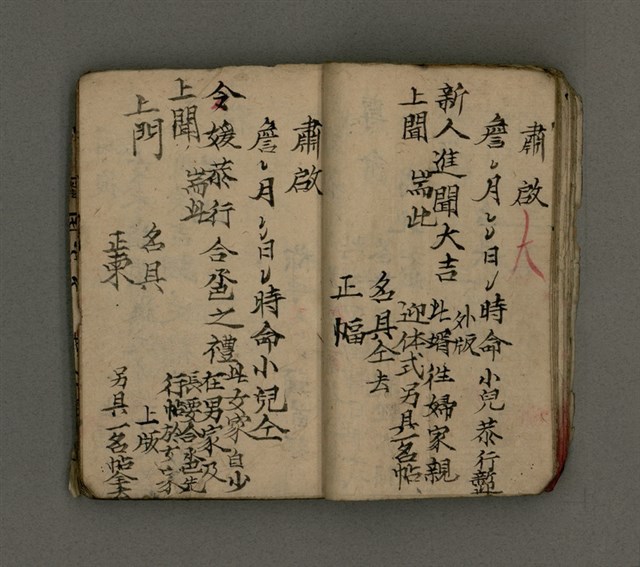 肅啟
詹〻月〻日〻時命小兒恭行
新人進聞大吉 外版
上聞 耑此 此壻往婦家親
迎体式另具一名帖
名具仝去
正幅
肅啟
詹〻月〻日〻時命小兒仝
令媛恭行合巹之禮 此女家自少
上聞 耑此 在男家及
長要合巹先
行帖於女家
上門 名具 上版
正柬 另具一名帖仝去